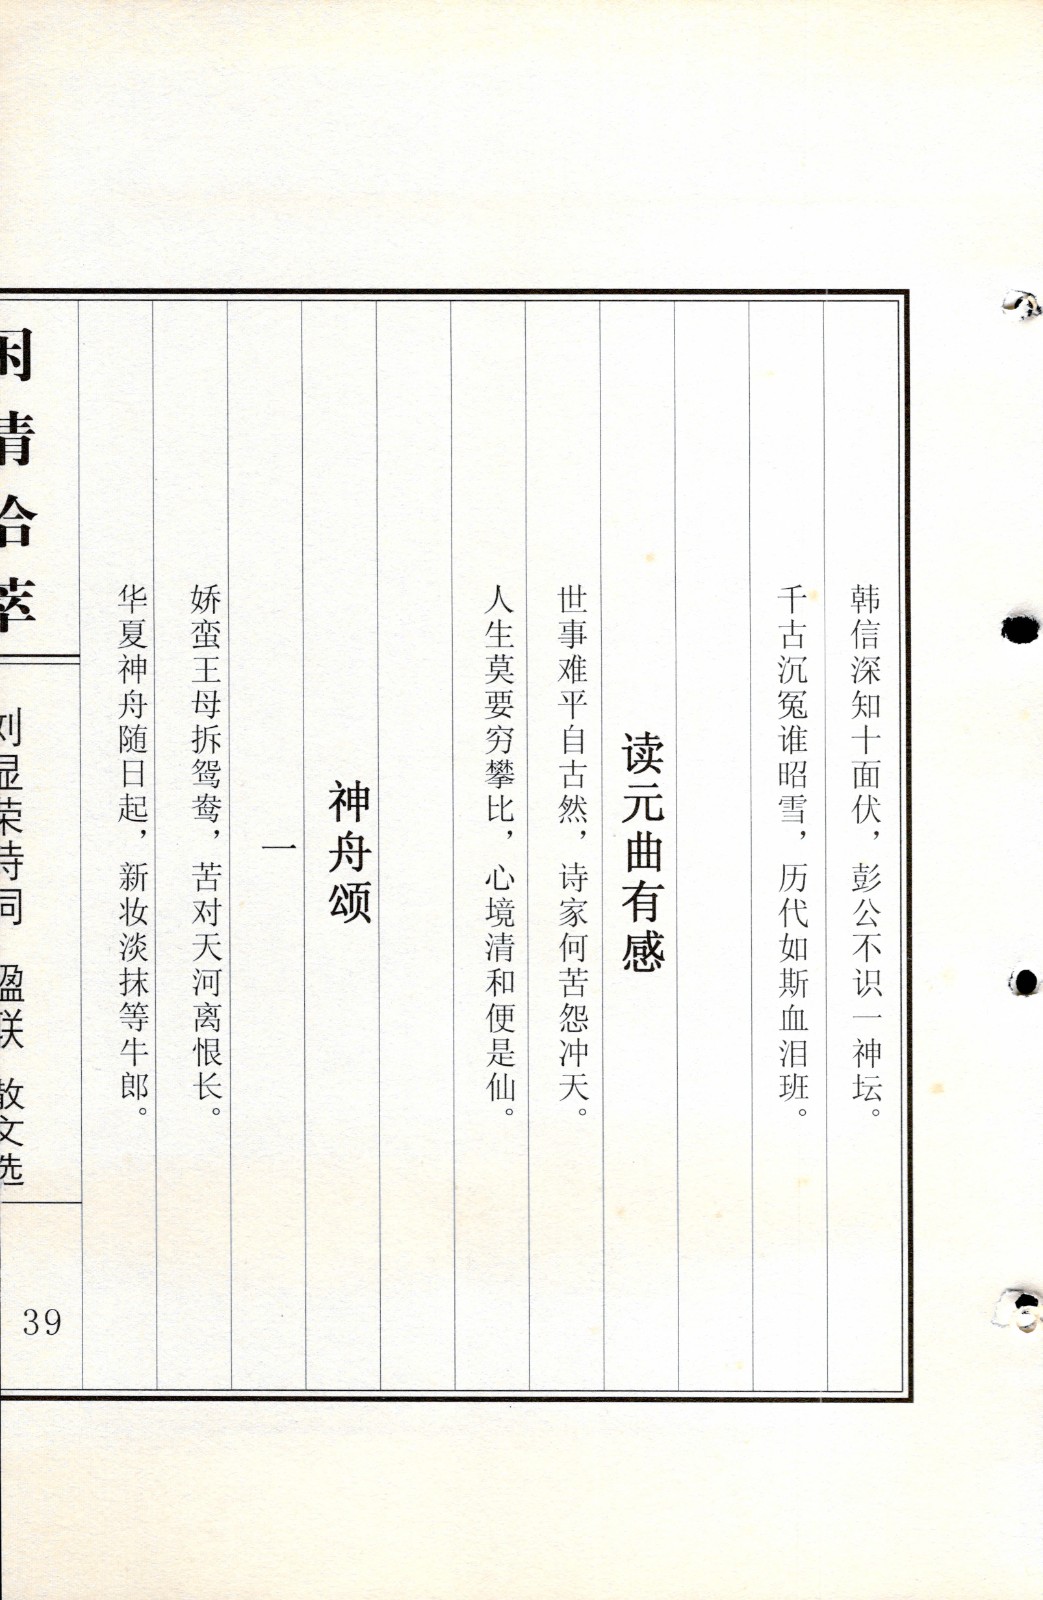 韩信深知十面伏，彭公不识一神坛。
千古沉冤谁昭雪，历代如斯血泪班。
读元曲有感
世事难平自古然，诗家何苦怨冲天。
人生莫要穷攀比，心境清和便是仙。
神舟颂
一
娇蛮王母拆鸳鸯，苦对天河离恨长。
华夏神舟随日起，新妆淡抹等牛郎。
闲情拾萃
刘显荣诗词 楹联 散文选
39